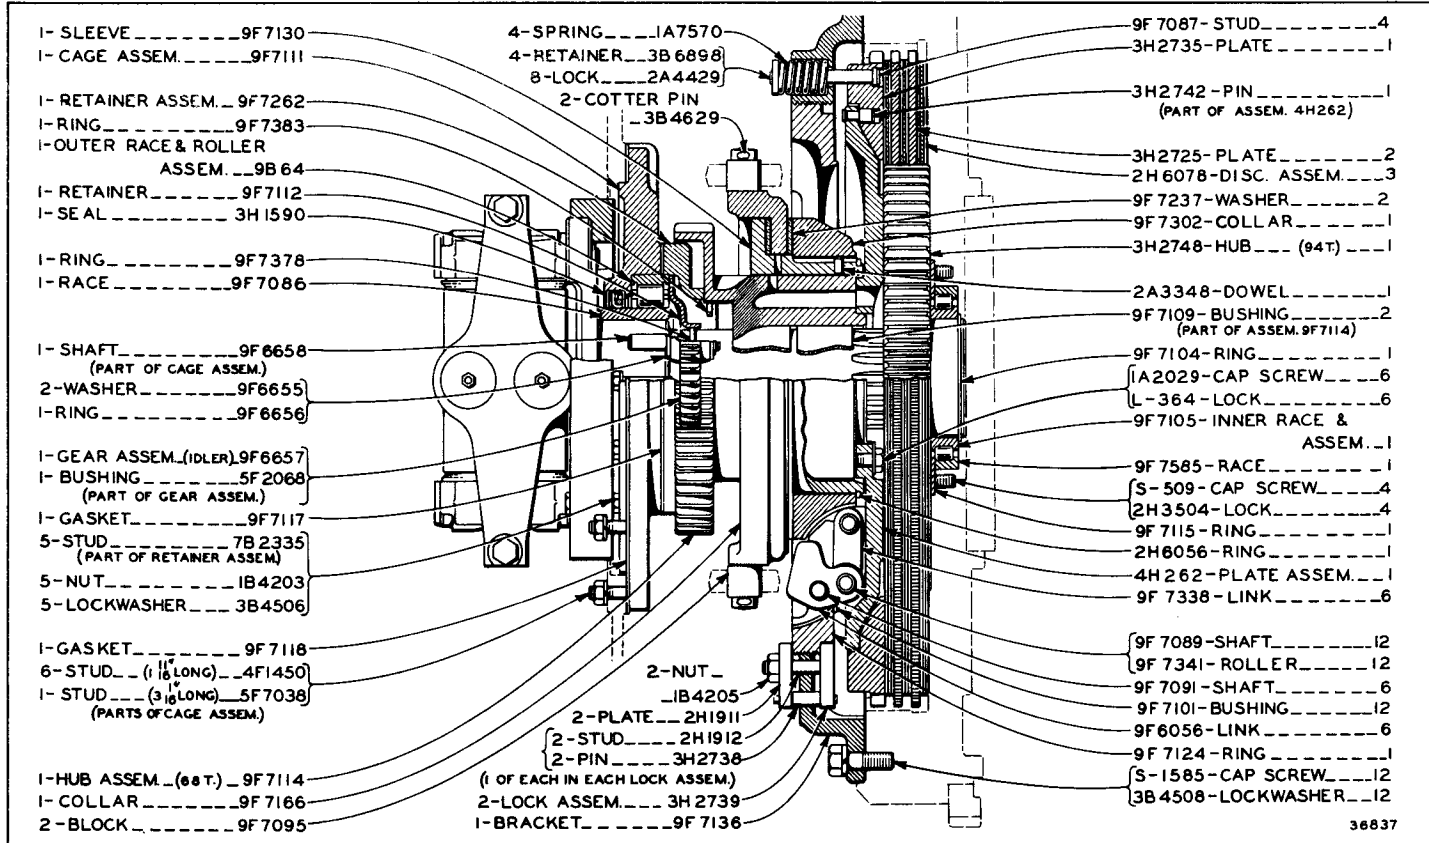 1- SLEEVE _______ 9F7130
1- CAGE ASSEM. ______ 9F7111
1- RETAINER ASSEM. _ 9F7262
1- RING _________ 9F7383
1-OUTER RACE & ROLLER
ASSEM. __ 9B64
1- RETAINER _____ 9F7112
1- SEAL ________ 3H1590
1- RING _________ 9F7378
1- RACE ________ 9F7086
1- SHAFT _______ 9F6658
(PART OF CAGE ASSEM.)
2-WASHER ______ 9F6655
1-RING _________ 9F6656
1-GEAR ASSEM. _(IDLER)_ 9F6657
1- BUSHING _____ 5F2068
(PART OF GEAR ASSEM.)
1-GASKET _______ 9F7117
5-STUD ________ 7B2335
(PART OF RETAINER ASSEM)
5-NUT _________ 1B4203
5-LOCKWASHER ___ 3B4506
1-GASKET _______ 9F7118
6-STUD __ (1 11/16" LONG) __ 4F1450
1- STUD ___ (3 1/16" LONG) __ 5F7038
(PARTS OF CAGE ASSEM.)
1-HUB ASSEM. _ (68 T.) _ 9F7114
1- COLLAR _______ 9F7166
2-BLOCK ________ 9F7095
4-SPRING ____ 1A7570
4-RETAINER __ 3B6898
8-LOCK ____ 2A4429
2-COTTER PIN
_ 3B4629
2-NUT _
_ 1B4205
2-PLATE __ 2H1911
2-STUD ____ 2H1912
2-PIN ____ 3H2738
(1 OF EACH IN EACH LOCK ASSEM.)
2-LOCK ASSEM. ___ 3H2739
1-BRACKET _______ 9F7136
9F7087-STUD ____ 4
3H2735-PLATE _____ 1
3H2742-PIN ______ 1
(PART OF ASSEM. 4H262)
3H2725-PLATE _____ 2
2H6078-DISC. ASSEM. ___ 3
9F7237-WASHER _____ 2
9F7302-COLLAR _____ 1
3H2748-HUB ___ (94T.) __ 1
2A3348-DOWEL ______ 1
9F7109-BUSHING _____ 2
(PART OF ASSEM. 9F7114)
9F7104-RING _______ 1
1A2029-CAP SCREW ___ 6
L-364-LOCK ______ 6
9F7105-INNER RACE &
ASSEM. _ 1
9F7585-RACE ______ 1
S-509-CAP SCREW ____ 4
2H3504-LOCK ______ 4
9F7115-RING _______ 1
2H6056-RING ______ 1
4H262-PLATE ASSEM. __ 1
9F7338-LINK _____ 6
9F7089-SHAFT _____ 12
9F7341-ROLLER ____ 12
9F7091-SHAFT _____ 6
9F7101-BUSHING ____ 12
9F6056-LINK ______ 6
9F7124-RING ______ 1
S-1585-CAP SCREW ___ 12
3B4508-LOCKWASHER __ 12
36837